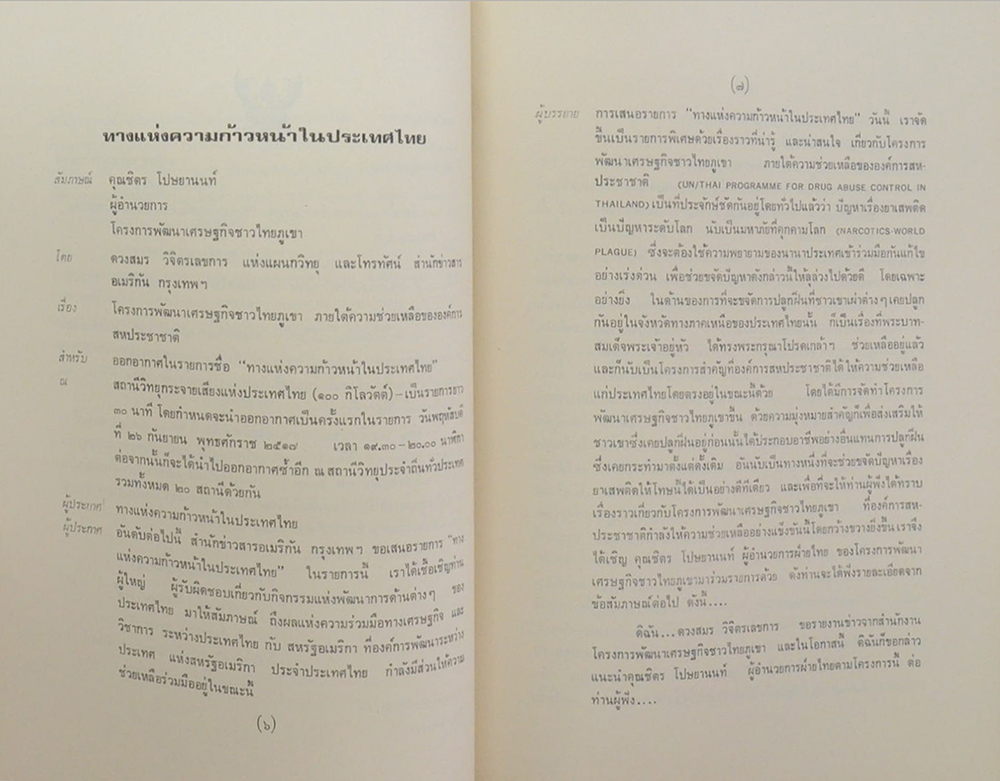 ทางแห่งความก้าวหน้าในประเทศไทย
สัมภาษณ์ คุณชิตร โปษยานนท์
ผู้อำนวยการ
โครงการพัฒนาเศรษฐกิจชาวไทยภูเขา
โดย ดวงสมร วิจิตรเลขการ แห่งแผนกวิทยุ และโทรทัศน์ สำนักข่าวสาร
อเมริกัน กรุงเทพฯ
เรื่อง โครงการพัฒนาเศรษฐกิจชาวไทยภูเขา ภายใต้ความช่วยเหลือขององค์การ
สหประชาชาติ
สำหรับ ออกอากาศในรายการชื่อ “ทางแห่งความก้าวหน้าในประเทศไทย”
ณ สถานีวิทยุกระจายเสียงแห่งประเทศไทย (๑๐๐ กิโลวัตต์) – เป็นรายการยาว
๓๐ นาที โดยกำหนดจะนำออกอากาศเป็นครั้งแรกในรายการ วันพฤหัสบดี
ที่ ๒๖ กันยายน พุทธศักราช ๒๕๑๗ เวลา ๑๙.๓๐ – ๒๐.๐๐ นาฬิกา
ต่อจากนั้นก็จะได้นำไปออกอากาศซ้ำอีก ณ สถานีวิทยุประจำถิ่นทั่วประเทศ
รวมทั้งหมด ๒๐ สถานีด้วยกัน
ผู้ประกาศ ทางแห่งความก้าวหน้าในประเทศไทย
ผู้ประกาศ อันดับต่อไปนี้ สำนักข่าวสารอเมริกัน กรุงเทพฯ ขอเสนอรายการ “ทาง
แห่งความก้าวหน้าในประเทศไทย” ในรายการนี้ เราได้เชื้อเชิญท่าน
ผู้ใหญ่ ผู้รับผิดชอบเกี่ยวกับกิจกรรมแห่งพัฒนาการด้านต่างๆ ของ
ประเทศไทย มาให้สัมภาษณ์ ถึงผลแห่งความร่วมมือทางเศรษฐกิจ และ
วิชาการ ระหว่างประเทศไทย กับ สหรัฐอเมริกา ที่องค์การพัฒนาระหว่าง
ประเทศ แห่งสหรัฐอเมริกา ประจำประเทศไทย กำลังมีส่วนให้ความ
ช่วยเหลือร่วมมืออยู่ในขณะนี้
(๖)
(๗)
ผู้บรรยาย การเสนอรายการ “ทางแห่งความก้าวหน้าในประเทศไทย” วันนี้ เราจัด
ขึ้นเป็นรายการพิเศษด้วยเรื่องราวที่น่ารู้ และน่าสนใจ เกี่ยวกับโครงการ
พัฒนาเศรษฐกิจชาวไทยภูเขา ภายใต้ความช่วยเหลือขององค์การสห-
ประชาชาติ (UN/THAI PROGRAMME FOR DRUG ABUSE CONTROL IN
THAILAND) เป็นที่ประจักษ์ชัดกันอยู่โดยทั่วไปแล้วว่า ปัญหาเรื่องยาเสพติด
เป็นปัญหาระดับโลก นับเป็นมหาภัยที่คุกคามโลก (NARCOTICS-WORLD
PLAGUE) ซึ่งจะต้องใช้ความพยายามของนานาประเทศเข้าร่วมมือกันแก้ไข
อย่างเร่งด่วน เพื่อช่วยขจัดปัญหาดังกล่าวนี้ให้ลุล่วงไปด้วยดี โดยเฉพาะ
อย่างยิ่ง ในด้านของการที่จะขจัดการปลูกฝิ่นที่ชาวเขาเผ่าต่างๆ เคยปลูก
กันอยู่ในจังหวัดทางภาคเหนือของประเทศไทยนั้น ก็เป็นเรื่องที่พระบาท-
สมเด็จพระเจ้าอยู่หัว ได้ทรงพระกรุณาโปรดเกล้าฯ ช่วยเหลืออยู่แล้ว
และก็นับเป็นโครงการสำคัญที่องค์การสหประชาชาติได้ให้ความช่วยเหลือ
แก่ประเทศไทยโดยตรงอยู่ในขณะนี้ด้วย โดยได้มีการจัดทำโครงการ
พัฒนาเศรษฐกิจชาวไทยภูเขาขึ้น ด้วยความมุ่งหมายสำคัญก็เพื่อส่งเสริมให้
ชาวเขาซึ่งเคยปลูกฝิ่นอยู่ก่อนนั้นได้ประกอบอาชีพอย่างอื่นแทนการปลูกฝิ่น
ซึ่งเคยกระทำมาตั้งแต่ดั้งเดิม อันนับเป็นทางหนึ่งที่จะช่วยขจัดปัญหาเรื่อง
ยาเสพติดให้โทษนี้ได้เป็นอย่างดีทีเดียว และเพื่อที่จะให้ท่านผู้ฟังได้ทราบ
เรื่องราวเกี่ยวกับโครงการพัฒนาเศรษฐกิจชาวไทยภูเขา ที่องค์การสห-
ประชาชาติกำลังให้ความช่วยเหลืออย่างแข็งขันนี้โดยกว้างขวางยิ่งขึ้น เราจึง
ได้เชิญ คุณชิตร โปษยานนท์ ผู้อำนวยการฝ่ายไทย ของโครงการพัฒนา
เศรษฐกิจชาวไทยภูเขามาร่วมรายการด้วย ดังท่านจะได้ฟังรายละเอียดจาก
ข้อสัมภาษณ์ต่อไป ดังนี้....
ดิฉัน...ดวงสมร วิจิตรเลขการ ขอรายงานข่าวจากสำนักงาน
โครงการพัฒนาเศรษฐกิจชาวไทยภูเขา และในโอกาสนี้ ดิฉันก็ขอกล่าว
แนะนำคุณชิตร โปษยานนท์ ผู้อำนวยการฝ่ายไทยตามโครงการนี้ ต่อ
ท่านผู้ฟัง....